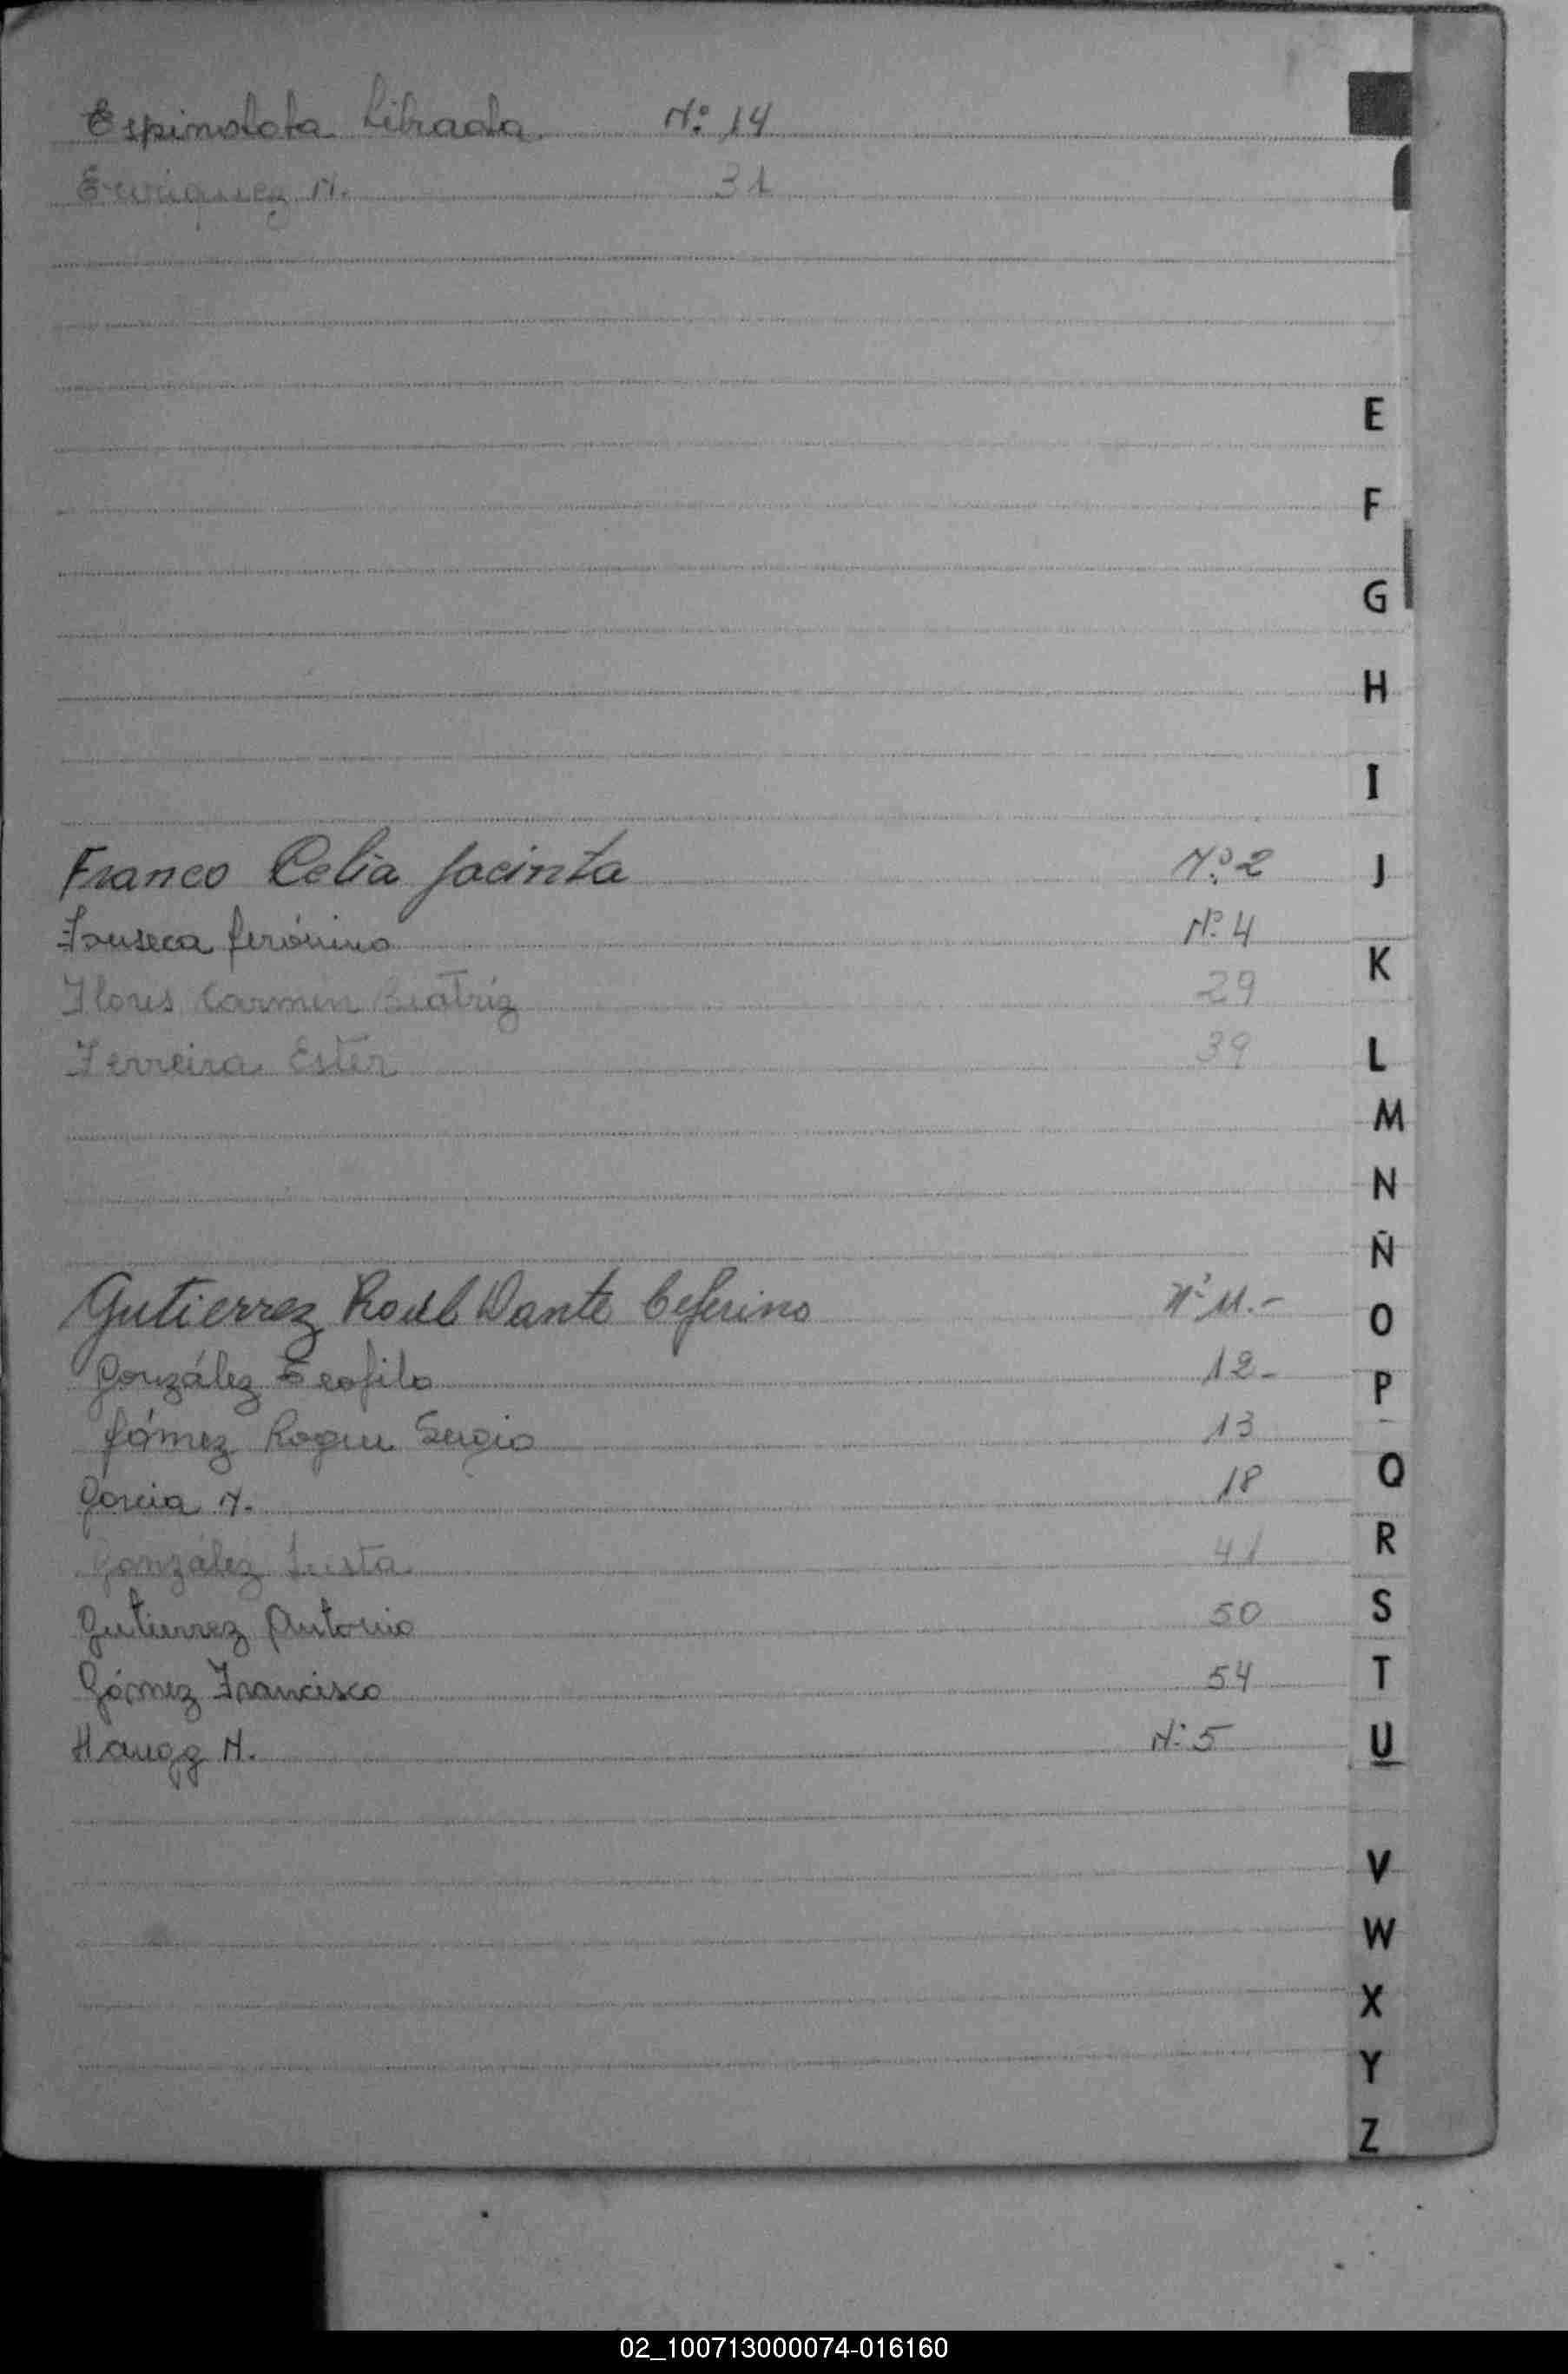 Espinolola Librada Nº 14
Enriquez N. 31
E
F
G
H
I
Franco Celia Jacinta Nº 2 J
Fonseca Jerónimo Nº 4
K
Flores Carmen Beatriz 29
Ferreira Ester 39 L
M
N
Ñ
Gutierrez Raul Dante Ceferino Nº 11.- O
González Teofilo 12- P
Gómez Roque Sergio 13
Garcia N. 18 Q
González Justa 41 R
Gutierrez Antonio 50 S
Gómez Francisco 54 T
Haugg N. Nº 5 U
V
W
X
Y
Z
02_100713000074-016160